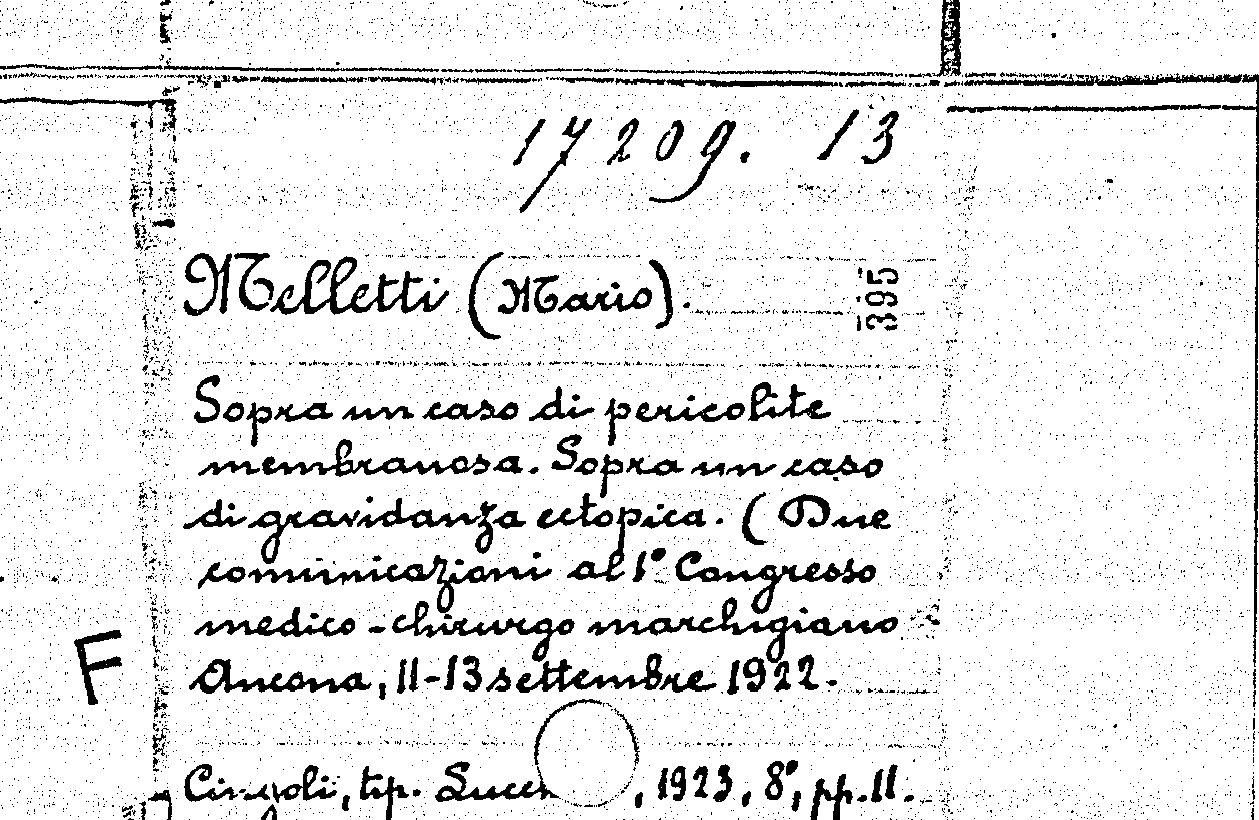 17209. 13
Melletti (Mario).
395
Sopra un caso di pericolite
membranosa. Sopra un caso
di gravidanza ectopica. (Due
comunicazioni al 1° Congresso
medico-chirurgo marchigiano
Ancona, 11-13 settembre 1922.
F
Cingoli, tip. , 1923, 8°, pp. 11.